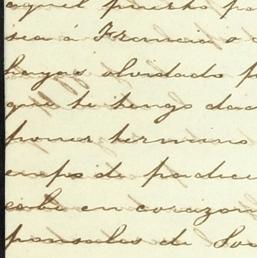 aquel puerto pa
sea á Francia o a
hayas olvidado p
que te tengo dad
poner termino
en ps de padece
este en corazon
ponsales de Lon